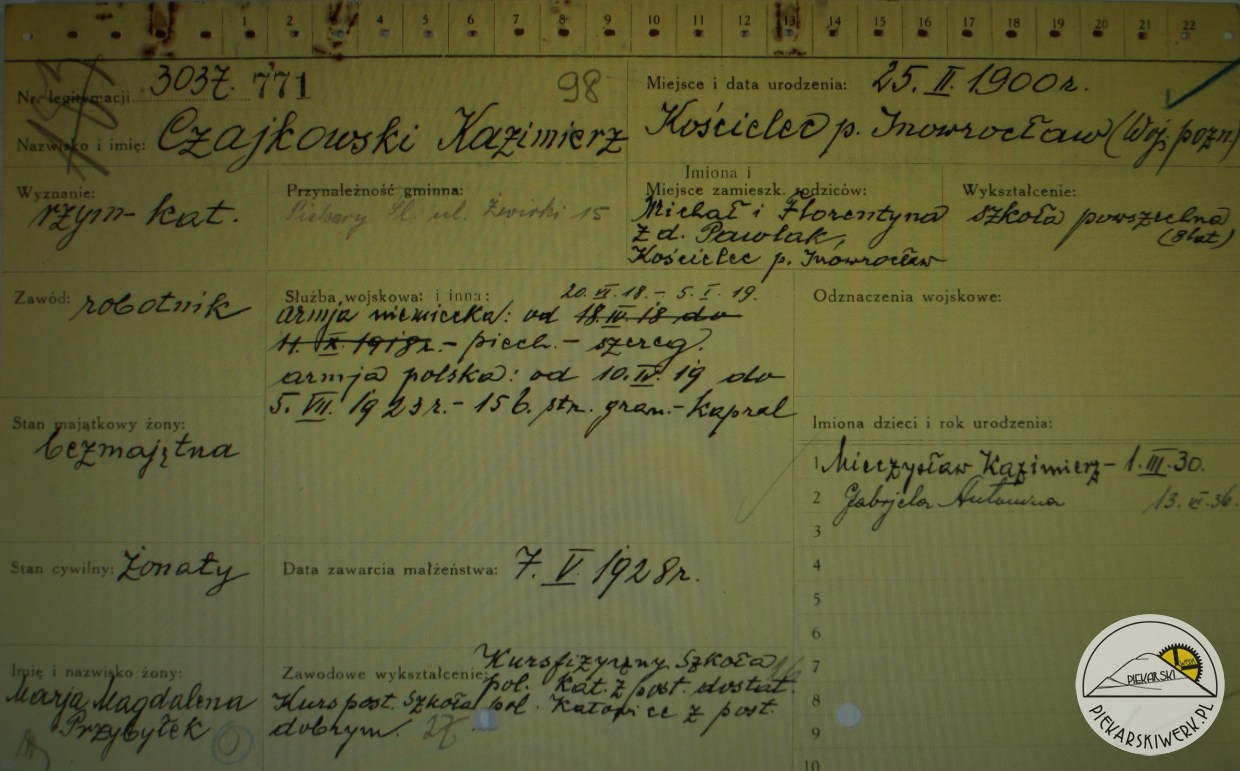 1 2 3 4 5 6 7 8 9 10 11 12 13 14 15 16 17 18 19 20 21 22
Nr. legitymacji 3037. 771
98
Nazwisko i imię: Czajkowski Kazimierz
Miejsce i data urodzenia: 25. II. 1900 r.
Kościelec p. Inowrocław (Woj. pozn)
Wyznanie:
rzym-kat.
Przynależność gminna:
Piekary Śl. ul. Żwirki 15
Imiona i
Miejsce zamieszk. rodziców:
Michał i Florentyna
z d. Pawlak,
Kościelec p. Inowrocław
Wykształcenie:
szkoła powszechna
(8 lat)
Zawód: robotnik
Służba wojskowa: i inna: 20. VI. 18. - 5. I. 19.
armja niemiecka: od 18. IV. 18 do
11. IX. 1918 r. - piech. - szereg.
armja polska: od 10. IV. 19 do
5. VII. 1923 r. - 15 b. str. gran. - kapral
Odznaczenia wojskowe:
Stan majątkowy żony:
bezmajętna
Imiona dzieci i rok urodzenia:
1 Mieczysław Kazimierz - 1. III. 30.
2 Gabrjela Antonina 13. VI. 36.
3
4
5
6
7
8
9
10
Stan cywilny: żonaty
Data zawarcia małżeństwa: 7. V. 1928 r.
Imię i nazwisko żony:
Marja Magdalena
Przybyłek
Zawodowe wykształcenie: Kurs fizyczny Szkoła
pol. Kat. z post. dostat.
Kurs post. Szkoła pol. Katowice z post.
dobrym.
PIEKARSKI
WERK
PIEKARSKIWERK.PL